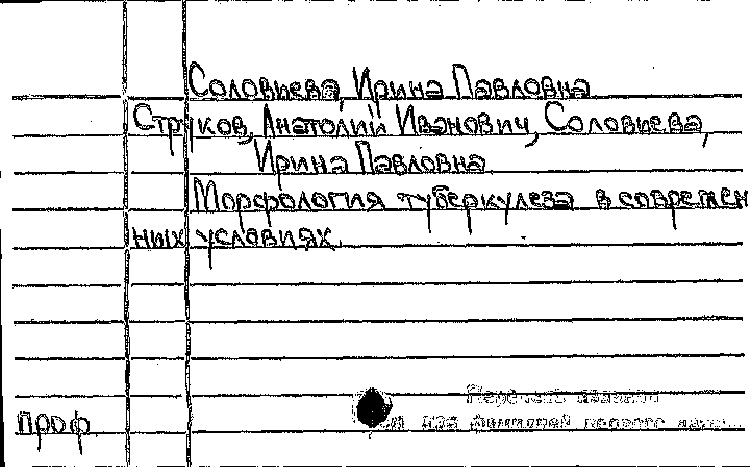 Соловьева, Ирина Павловна
Струков, Анатолий Иванович, Соловьева,
Ирина Павловна
Морфология туберкулеза в современ
ных условиях.
проф
фамилией первого